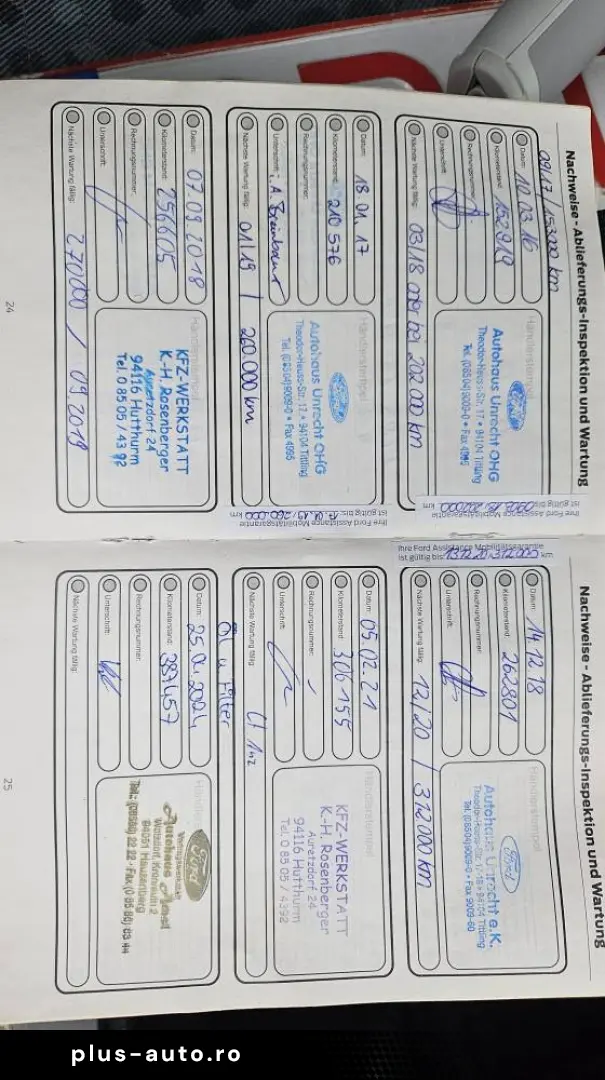 Nachweise - Ablieferungs-Inspektion und Wartung
09/17 / 153.000 km
Datum: 10.03.16
Kilometerstand: 152919
Rechnungsnummer:
Unterschrift:
Nächste Wartung fällig: 03/18 oder bei 202 000 km
Händlerstempel
Ford
Autohaus Unrecht OHG
Theodor-Heuss-Str. 17 • 94104 Tittling
Tel. (08504) 9009-0 • Fax 4995
Ihre Ford Assistance Mobilitätsgarantie
ist gültig bis: km
Datum: 18.01.17
Kilometerstand: 210 576
Rechnungsnummer:
Unterschrift:
Nächste Wartung fällig: 01/19 / 260 000 km
Händlerstempel
Ford
Autohaus Unrecht OHG
Theodor-Heuss-Str. 17 • 94104 Tittling
Tel. (08504) 9009-0 • Fax 4995
Ihre Ford Assistance Mobilitätsgarantie
ist gültig bis: 260 000 km
Datum: 07.09.2018
Kilometerstand: 256605
Rechnungsnummer:
Unterschrift:
Nächste Wartung fällig: 270000 / 09.2019
Händlerstempel
KFZ-WERKSTATT
K.-H. Rosenberger
Auretzdorf 24
94116 Hutthurm
Tel. 0 85 05 / 43 92
24
Nachweise - Ablieferungs-Inspektion und Wartung
Ihre Ford Assistance Mobilitätsgarantie
ist gültig bis: km
Datum: 14.12.18
Kilometerstand: 262801
Rechnungsnummer:
Unterschrift:
Nächste Wartung fällig: 12/20 / 312 000 km
Händlerstempel
Ford
Autohaus Unrecht e.K.
Theodor-Heuss-Str. 17 • 94104 Tittling
Tel. (08504) 9009-0 • Fax 9009-60
Datum: 05.02.21
Kilometerstand: 306 155
Rechnungsnummer:
Unterschrift:
Nächste Wartung fällig:
Händlerstempel
KFZ-WERKSTATT
K.-H. Rosenberger
Auretzdorf 24
94116 Hutthurm
Tel. 0 85 05 / 4392
Öl u. Filter
Datum: 25.04.2024
Kilometerstand: 389457
Rechnungsnummer:
Unterschrift:
Nächste Wartung fällig:
Händlerstempel
Ford
Vertragswerkstatt
Autohaus
94051 Hauzenberg
25
plus-auto.ro